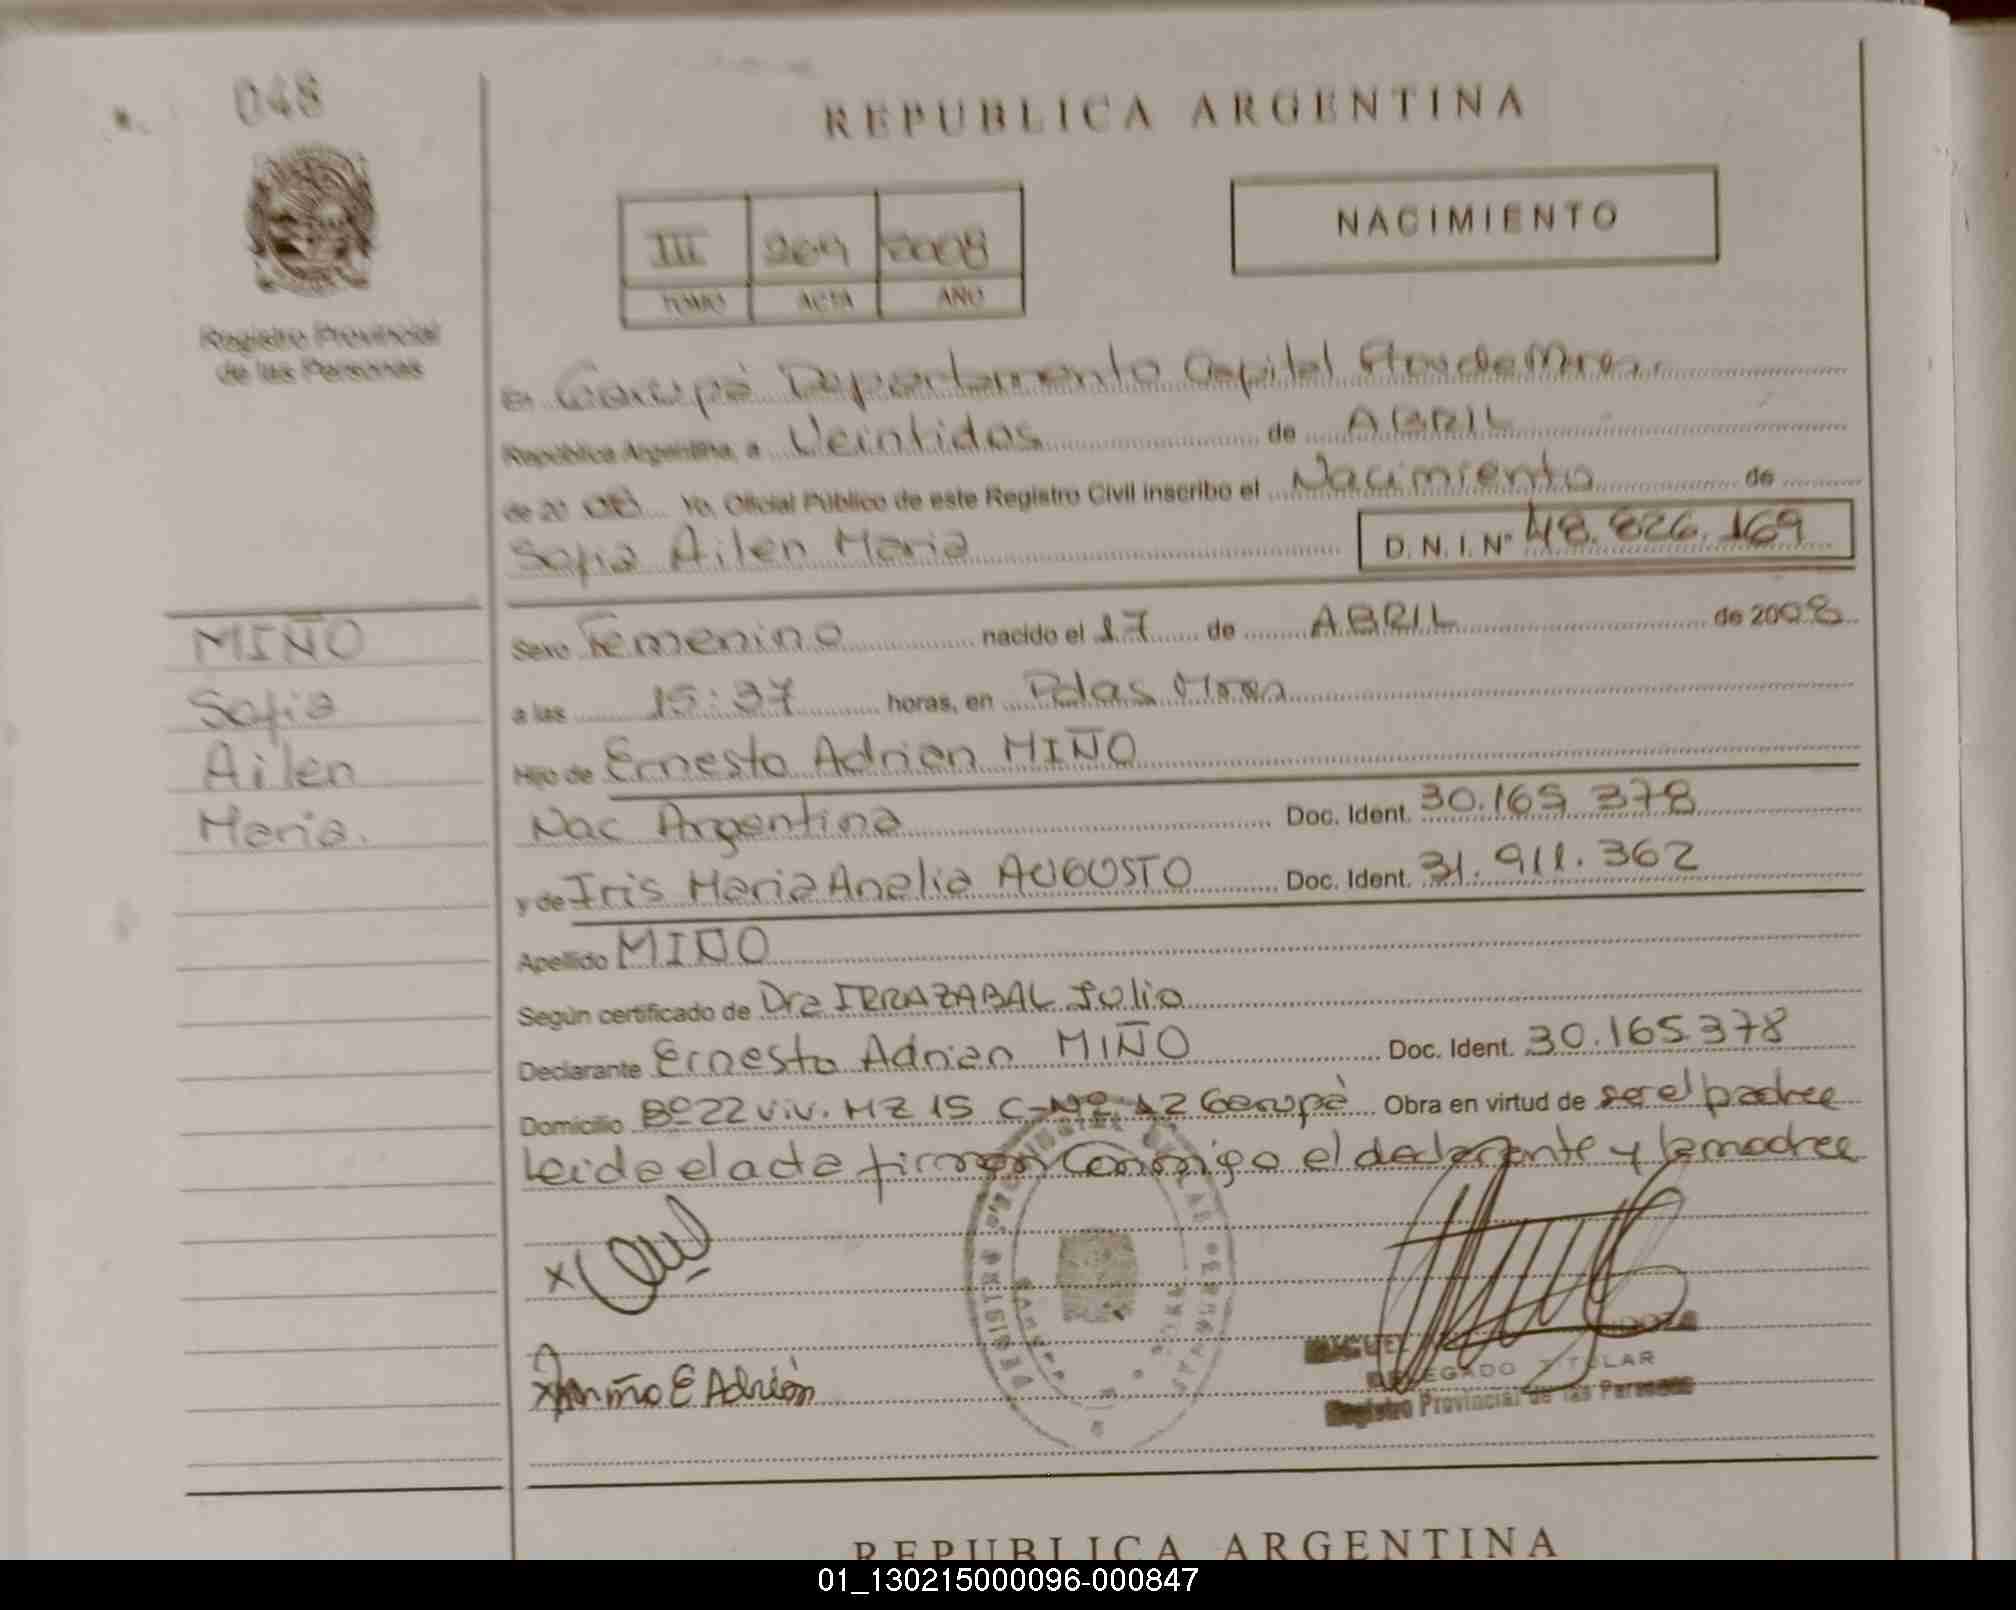 048
REPUBLICA ARGENTINA
NACIMIENTO
III 269 2008
TOMO ACTA AÑO
Registro Provincial
de las Personas
En Garupá Departamento Capital Pcia de Mnes.
República Argentina, a Veintidos de ABRIL
de 2008 Yo, Oficial Público de este Registro Civil inscribo el Nacimiento de
Sofia Ailen Maria D.N.I. Nº 48.826.169
MIÑO
Sofia
Ailen
Maria.
Sexo Femenino nacido el 17 de ABRIL de 2008
a las 15:37 horas, en Pdas Mnes
Hijo de Ernesto Adrian MIÑO
Nac Argentina Doc. Ident. 30.165.378
y de Iris Maria Analia AUGUSTO Doc. Ident. 31.911.362
Apellido MIÑO
Según certificado de Dra IRRAZABAL Julia
Declarante Ernesto Adrian MIÑO Doc. Ident. 30.165.378
Domicilio Bº 22 viv. MZ 15 C-Nº 12 Garupá Obra en virtud de ser el padre
Leida el acta firman conmigo el declarante y la madre
x
x Miño E Adrián
MIGUEL
DELEGADO TITULAR
Registro Provincial de las Personas
REPUBLICA ARGENTINA
01_130215000096-000847